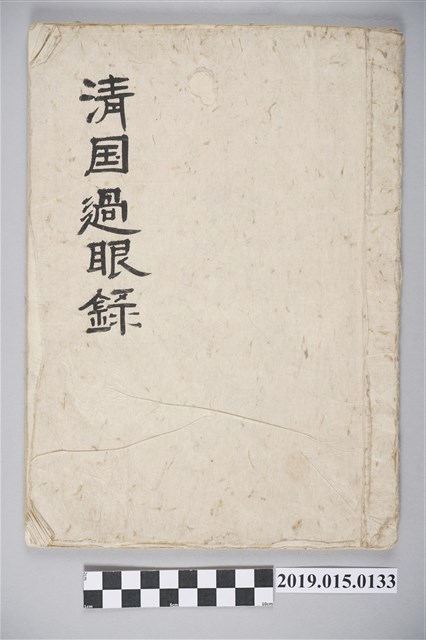 清国過眼錄
2019.015.0133